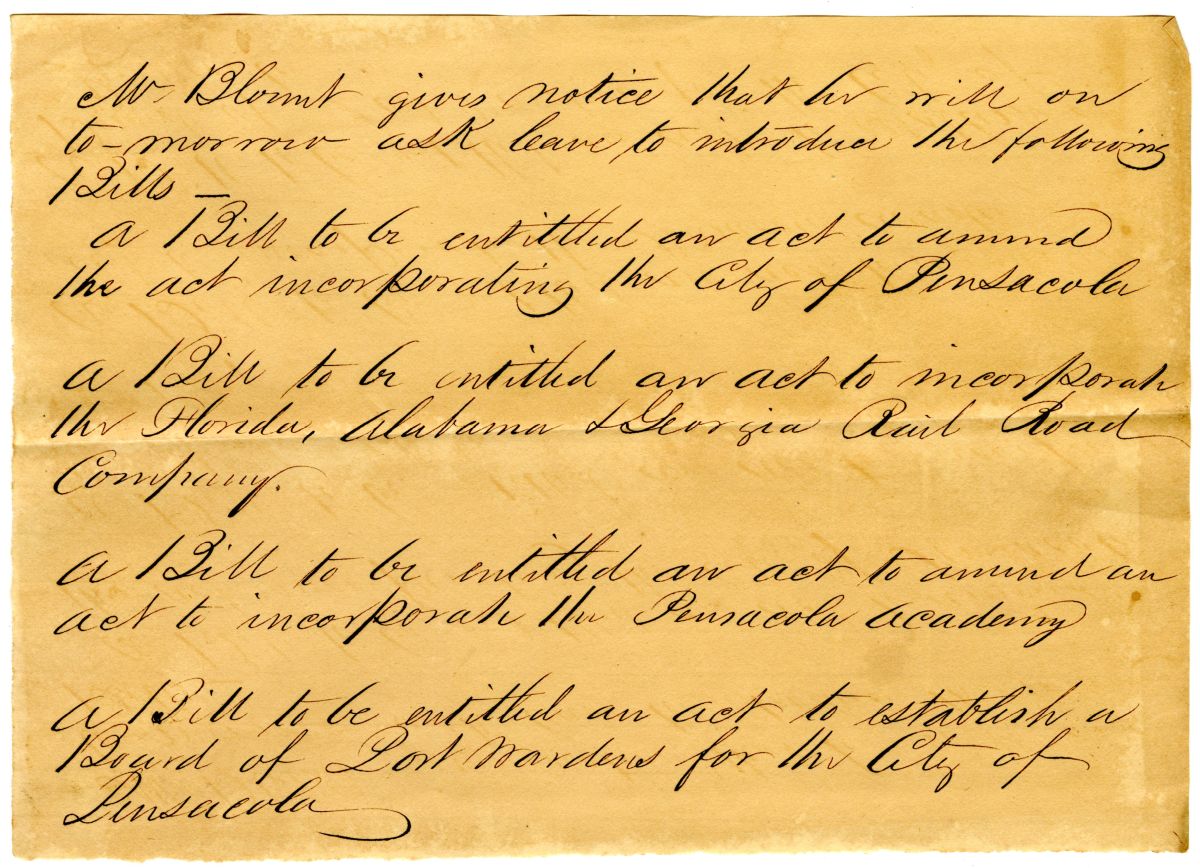 Mr Blount gives notice that he will on
to-morrow ask leave to introduce the following
Bills —
A Bill to be entittled an act to amend
the act incorporating the City of Pensacola
A Bill to be entitled an act to incorporate
the Florida, Alabama & Georgia Rail Road
Company.
A Bill to be entitled an act to amend an
act to incorporate the Pensacola Academy
A Bill to be entitled an act to establish a
Board of Port Wardens for the City of
Pensacola